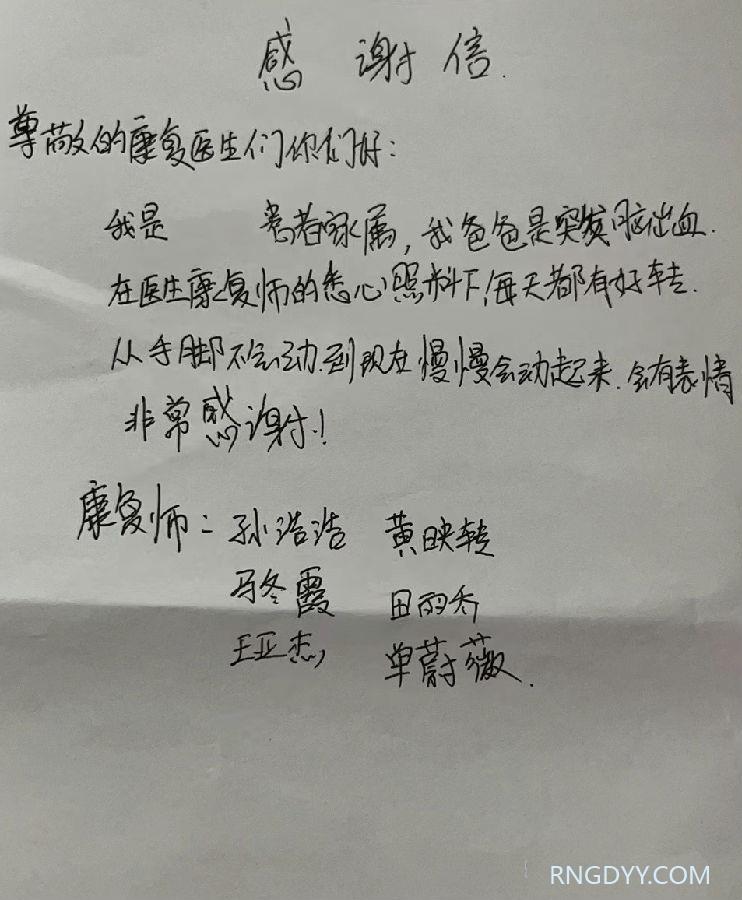 感谢信.
尊敬的康复医生们你们好:
我是 患者家属,我爸爸是突发脑出血.
在医生康复师的悉心照料下,每天都有好转.
从手脚不会动.到现在慢慢会动起来.会有表情
非常感谢.!
康复师: 孙浩浩 黄映转
马冬霞 田丽乔
王亚杰, 单蔚薇.
RNGDYY.COM